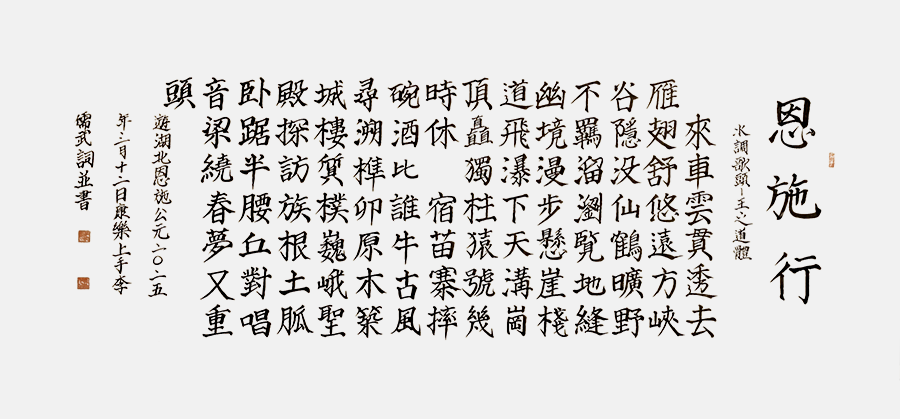 恩施行
水調歌頭–王之道體
來車雲貫透去
雁翅舒悠遠方峽
谷隱没仙鶴曠野
不羈溜瀏覽地縫
幽境漫步懸崖棧
道飛瀑下天溝崗
頂矗獨柱猿號幾
時休 宿苗寨摔
碗酒比誰牛古風
尋溯榫卯原木築
城樓質樸巍峨聖
殿探訪族根土脈
卧踞半腰丘對唱
音梁繞春夢又重
頭
遊湖北恩施公元二〇二五
年三月十二日康樂上手李
儒武詞並書